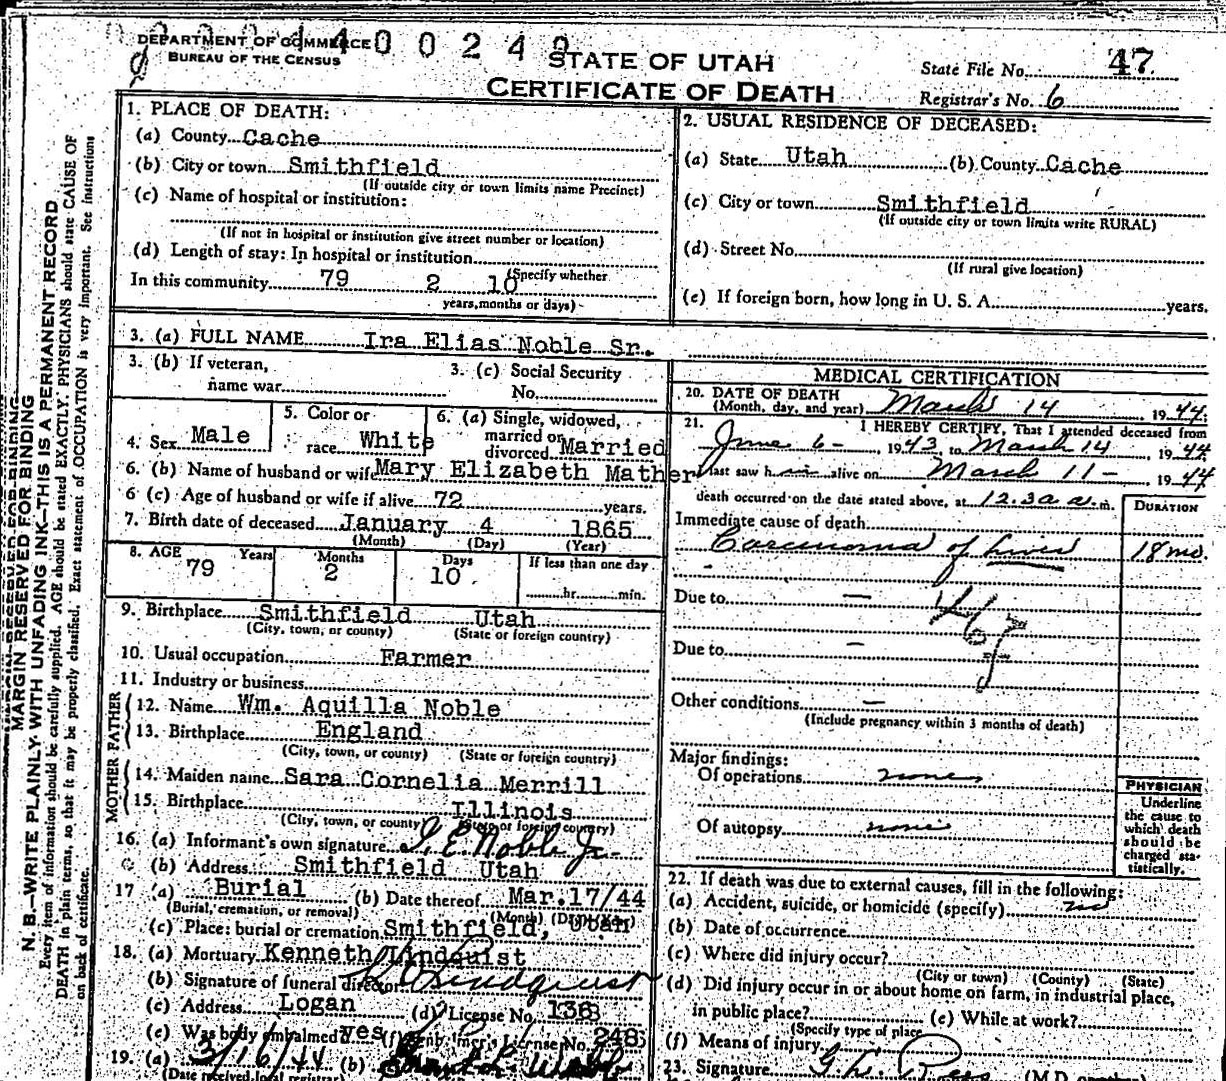 DEPARTMENT OF COMMERCE
BUREAU OF THE CENSUS
STATE OF UTAH
CERTIFICATE OF DEATH
State File No. 47
Registrar's No. 6
MARGIN RESERVED FOR BINDING
N. B.—WRITE PLAINLY WITH UNFADING INK—THIS IS A PERMANENT RECORD
Every item of information should be carefully supplied. AGE should be stated EXACTLY. PHYSICIANS should state CAUSE OF
DEATH in plain terms, so that it may be properly classified. Exact statement of OCCUPATION is very important. See instructions
on back of certificate.
1. PLACE OF DEATH:
(a) County Cache
(b) City or town Smithfield
(If outside city or town limits name Precinct)
(c) Name of hospital or institution:
(If not in hospital or institution give street number or location)
(d) Length of stay: In hospital or institution
(Specify whether
In this community 79 2 10
years, months or days)
2. USUAL RESIDENCE OF DECEASED:
(a) State Utah (b) County Cache
(c) City or town Smithfield
(If outside city or town limits write RURAL)
(d) Street No.
(If rural give location)
(e) If foreign born, how long in U. S. A. years.
3. (a) FULL NAME Ira Elias Noble Sr.
3. (b) If veteran,
name war
3. (c) Social Security
No.
4. Sex Male
5. Color or
race White
6. (a) Single, widowed,
married or
divorced Married
6. (b) Name of husband or wife Mary Elizabeth Mather
6 (c) Age of husband or wife if alive 72 years.
7. Birth date of deceased January 4 1865
(Month) (Day) (Year)
8. AGE Years Months Days If less than one day
79 2 10 hr. min.
9. Birthplace Smithfield Utah
(City, town, or county) (State or foreign country)
10. Usual occupation Farmer
11. Industry or business
FATHER
12. Name Wm. Aquilla Noble
13. Birthplace England
(City, town, or county) (State or foreign country)
MOTHER
14. Maiden name Sara Cornelia Merrill
15. Birthplace Illinois
(City, town, or county) (State or foreign country)
16. (a) Informant's own signature I. E. Noble Jr.
(b) Address Smithfield Utah
17 (a) Burial (b) Date thereof Mar.17/44
(Burial, cremation, or removal) (Month) (Day) (Year)
(c) Place: burial or cremation Smithfield, Utah
18. (a) Mortuary Kenneth Lindquist
(b) Signature of funeral director
(c) Address Logan (d) License No. 1363
(e) Was body embalmed? yes (f) Embalmer's License No. 248
19. (a) 3/16/44 (b)
(Date received local registrar)
MEDICAL CERTIFICATION
20. DATE OF DEATH
(Month, day, and year) March 14, 1944.
21. I HEREBY CERTIFY, That I attended deceased from
June 6-, 1943, to March 14, 1944
I last saw him alive on March 11-, 1944
death occurred on the date stated above, at 12.30 a.m.
DURATION
Immediate cause of death
Carcinoma of Liver 18 mo.
Due to —
Due to —
Other conditions —
(Include pregnancy within 3 months of death)
Major findings:
Of operations none
Of autopsy none
PHYSICIAN
Underline
the cause to
which death
should be
charged sta-
tistically.
22. If death was due to external causes, fill in the following:
(a) Accident, suicide, or homicide (specify) no
(b) Date of occurrence
(c) Where did injury occur?
(City or town) (County) (State)
(d) Did injury occur in or about home on farm, in industrial place,
in public place? (e) While at work?
(Specify type of place
(f) Means of injury
23. Signature